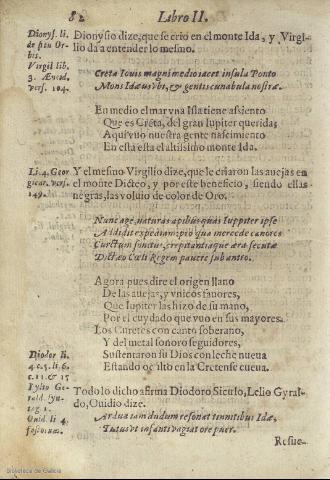 82 Libro II.
Dionys. li. de situ Orbis.
Virgil lib. 3. Æneid. vers. 104.
Dionysio dize, que se crio en el monte Ida, y Virgilio da a entender lo mesmo.
Creta Iouis magni medio iacet insula Ponto
Mons Idæus vbi, & gentis cunabula nostræ.
En medio el mar vna Isla tiene assiento
Que es Creta, del gran Iupiter querida;
Aqui vuo nuestra gente nascimiento
En esta esta el altissimo monte Ida.
Li. 4. Georgicor. vers. 149.
Y el mesmo Virgilio dize, que le criaron las auejas en
el monte Dicteo, y por este beneficio, siendo ellas
negras, las voluio de color de Oro.
Nunc age, naturas apibus quas Iuppiter ipse
Addidit expediam: pro qua mercede canores
Curetum sonitus, crepitantiaque æra secutæ
Dictæo Cœli Regem pauere sub antro.
Agora pues dire el origen llano
De las auejas, y vnicos fauores,
Que Iupiter las hizo de su mano,
Por el cuydado que vuo en sus mayores.
Los Curetes con canto soberano,
Y del metal sonoro seguidores,
Sustentaron su Dios con leche nueua
Estando oculto en la Cretense cueua.
Diodor li. 4 c. 5. li. 6. c. 11 & 15
Lylio Gerald. syntag 1.
Ouid. li 4. fastorum.
Todo lo dicho afirma Diodoro Siculo, Lelio Gyraldo, Ouidio dize.
Ardua iamdudum resonat tinnitibus Idæ,
Tutus vt infanti vagiat ore puer.
Resue-
Biblioteca de Galicia